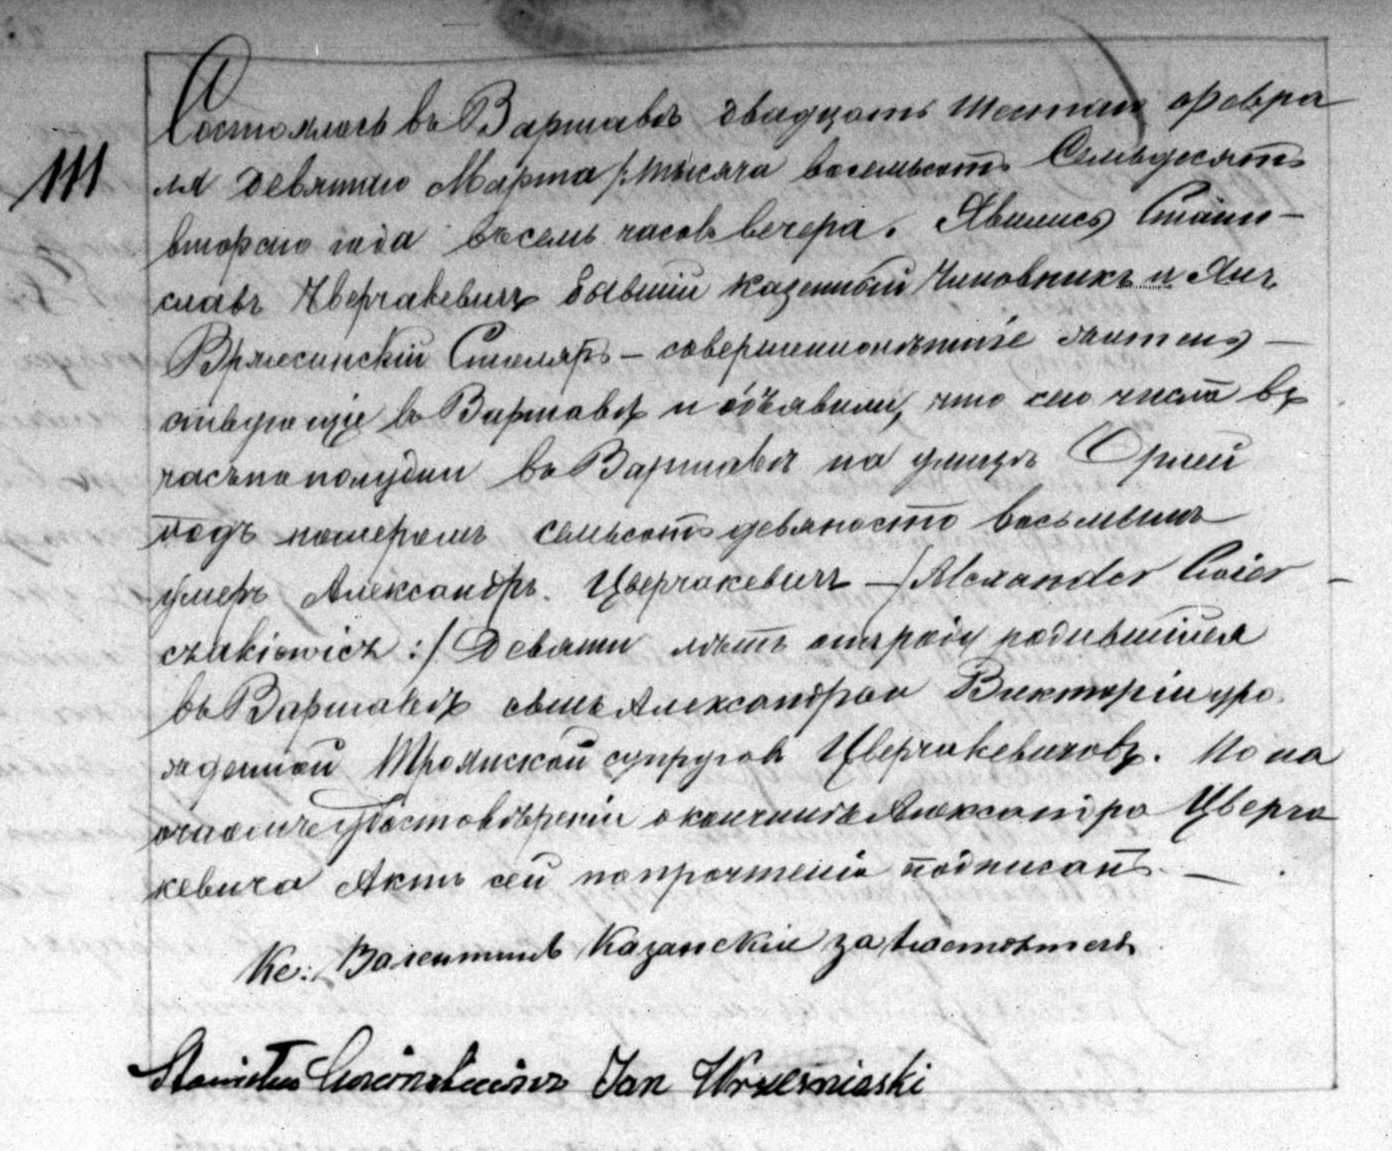 111
Состоялось въ Варшавѣ двадцать шестаго Февра
ля девятаго Марта /: тысяча восемьсотъ Семьдесятъ
втораго года въ семь часовъ вечера. Явились Стани-
славъ Цверчакевичъ бывшій казенный Чиновникъ и Янъ
Вржесинскій Столяръ – совершеннолѣтніе житель-
ствующіе въ Варшавѣ и объявили, что сего числа въ
часъ по полудни въ Варшавѣ на улицѣ Орлей
подъ номеромъ семьсотъ девяносто восьмымъ
умеръ Александръ Цверчакевичъ –/Alexander Cwier-
czakiewicz :/ Девяти лѣтъ отъ роду родившійся
въ Варшавѣ сынъ Александра и Викторіи уро
жденной Троянской супруговъ Цверчакевичовъ. По на
очномъ удостовѣреніи о кончинѣ Александра Цверча
кевича Актъ сей по прочтеніи подписанъ. –
Кс: Валентинъ Казанскій за настоятеля
Stanisław Cwierczakiewicz Jan Wrzesniaski